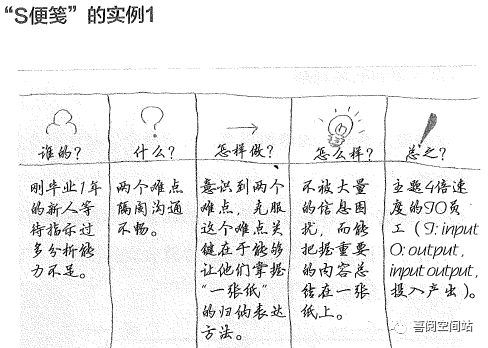 “S便笺”的实例1
谁的？
什么？
怎样做？
怎么样？
总之？
刚毕业1年
的新人等
待指示过
多分析能
力不足。
两个难点
隔阂沟通
不畅。
意识到两个
难点，克服
这个难点关
键在于能够
让他们掌握
“一张纸”
的归纳表达
方法。
不被大量
的信息困
扰，而能
把握重要
的内容总
结在一张
纸上。
主题4倍速
度的IO员
工（I：input
O：output，
input output，
投入产出）。
喜阅空间站